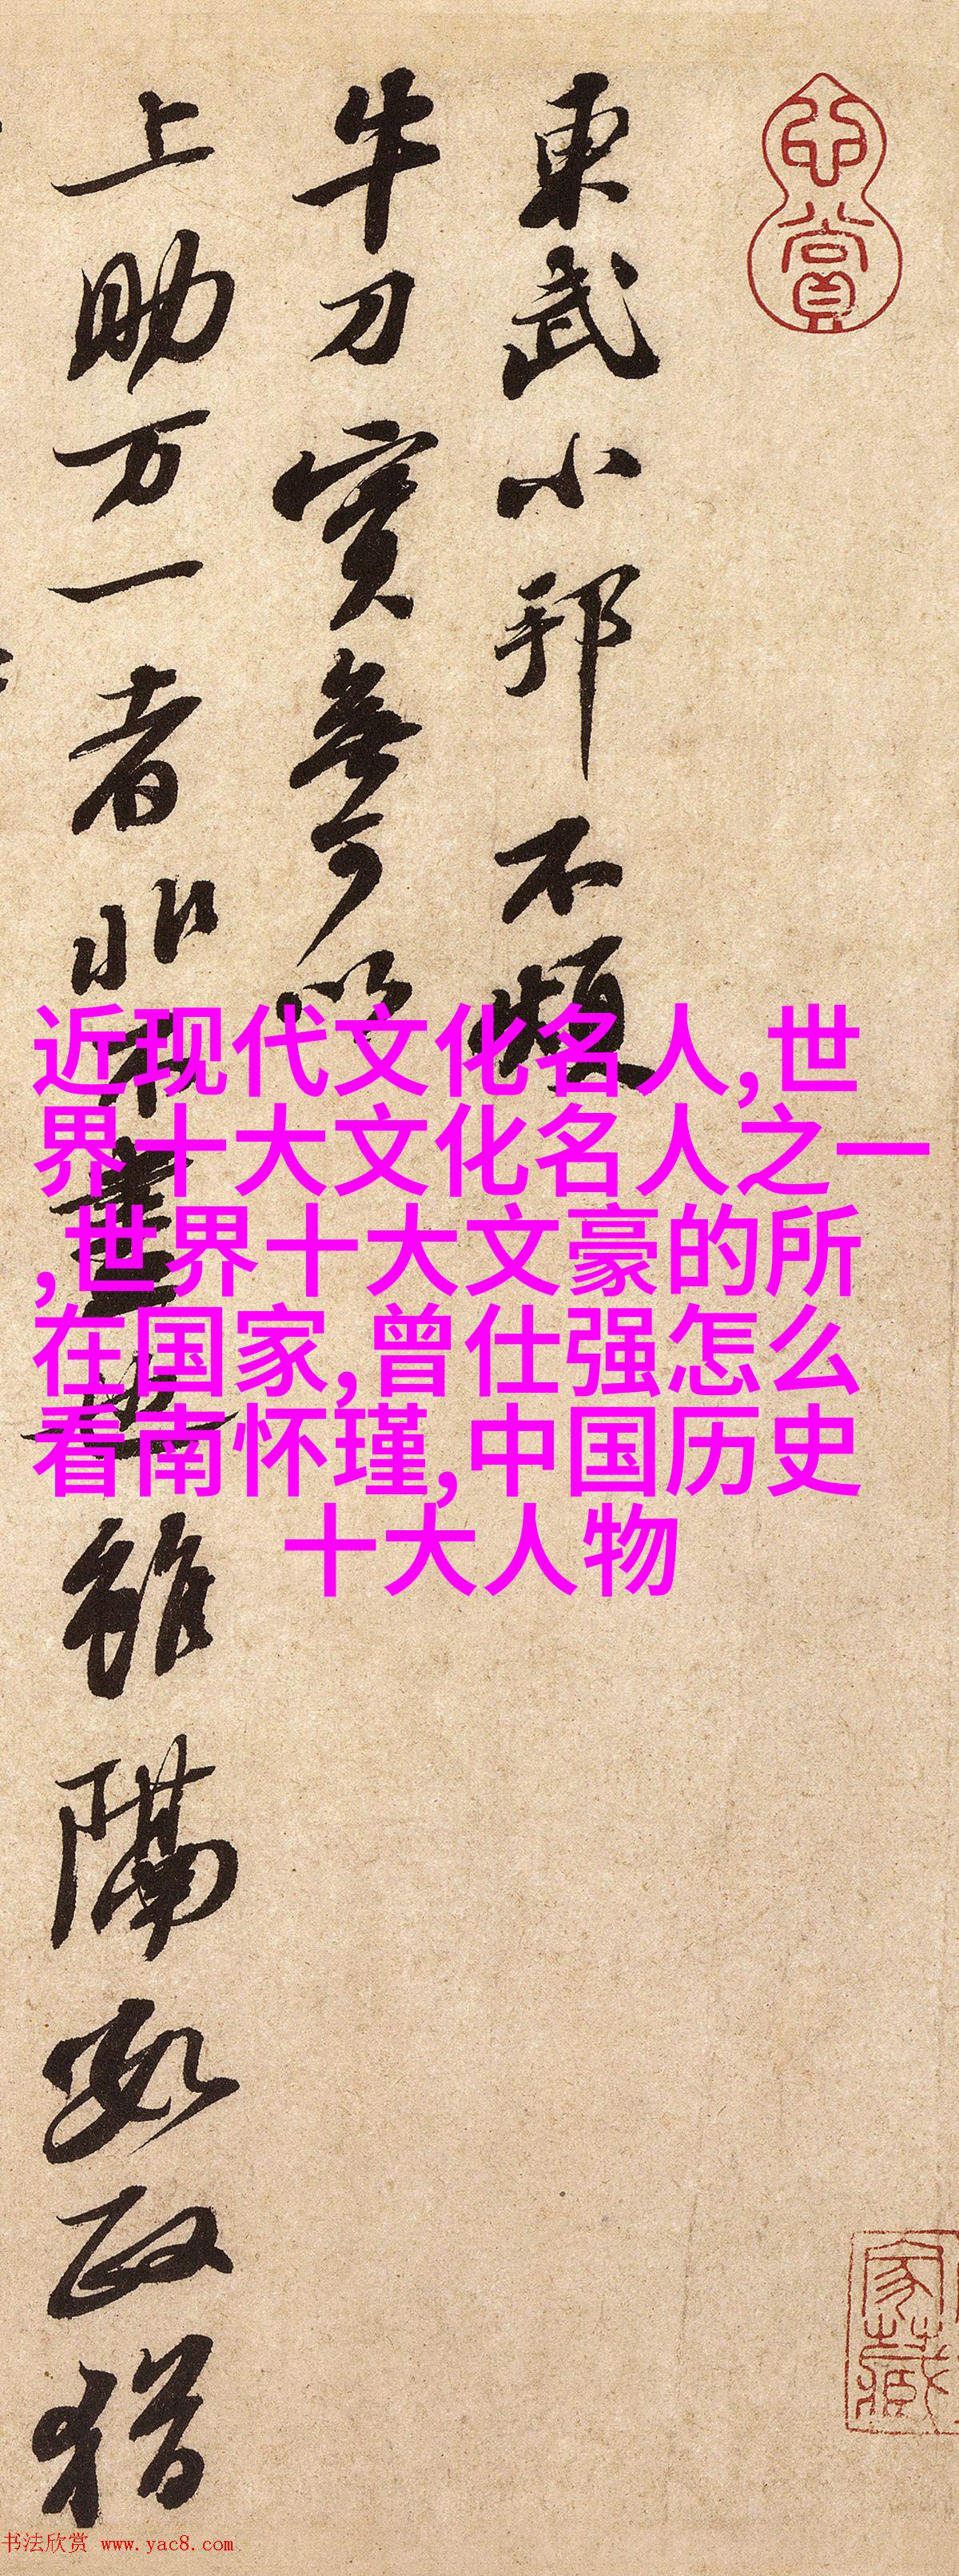 東武小邦不煩
牛刀實無可以
上助万一者非
書也雖隔數政猶
心賞
家藏
近现代文化名人,世
界十大文化名人之一
,世界十大文豪的所
在国家,曾仕强怎么
看南怀瑾,中国历史
十大人物
书法欣赏 www.yac8.com